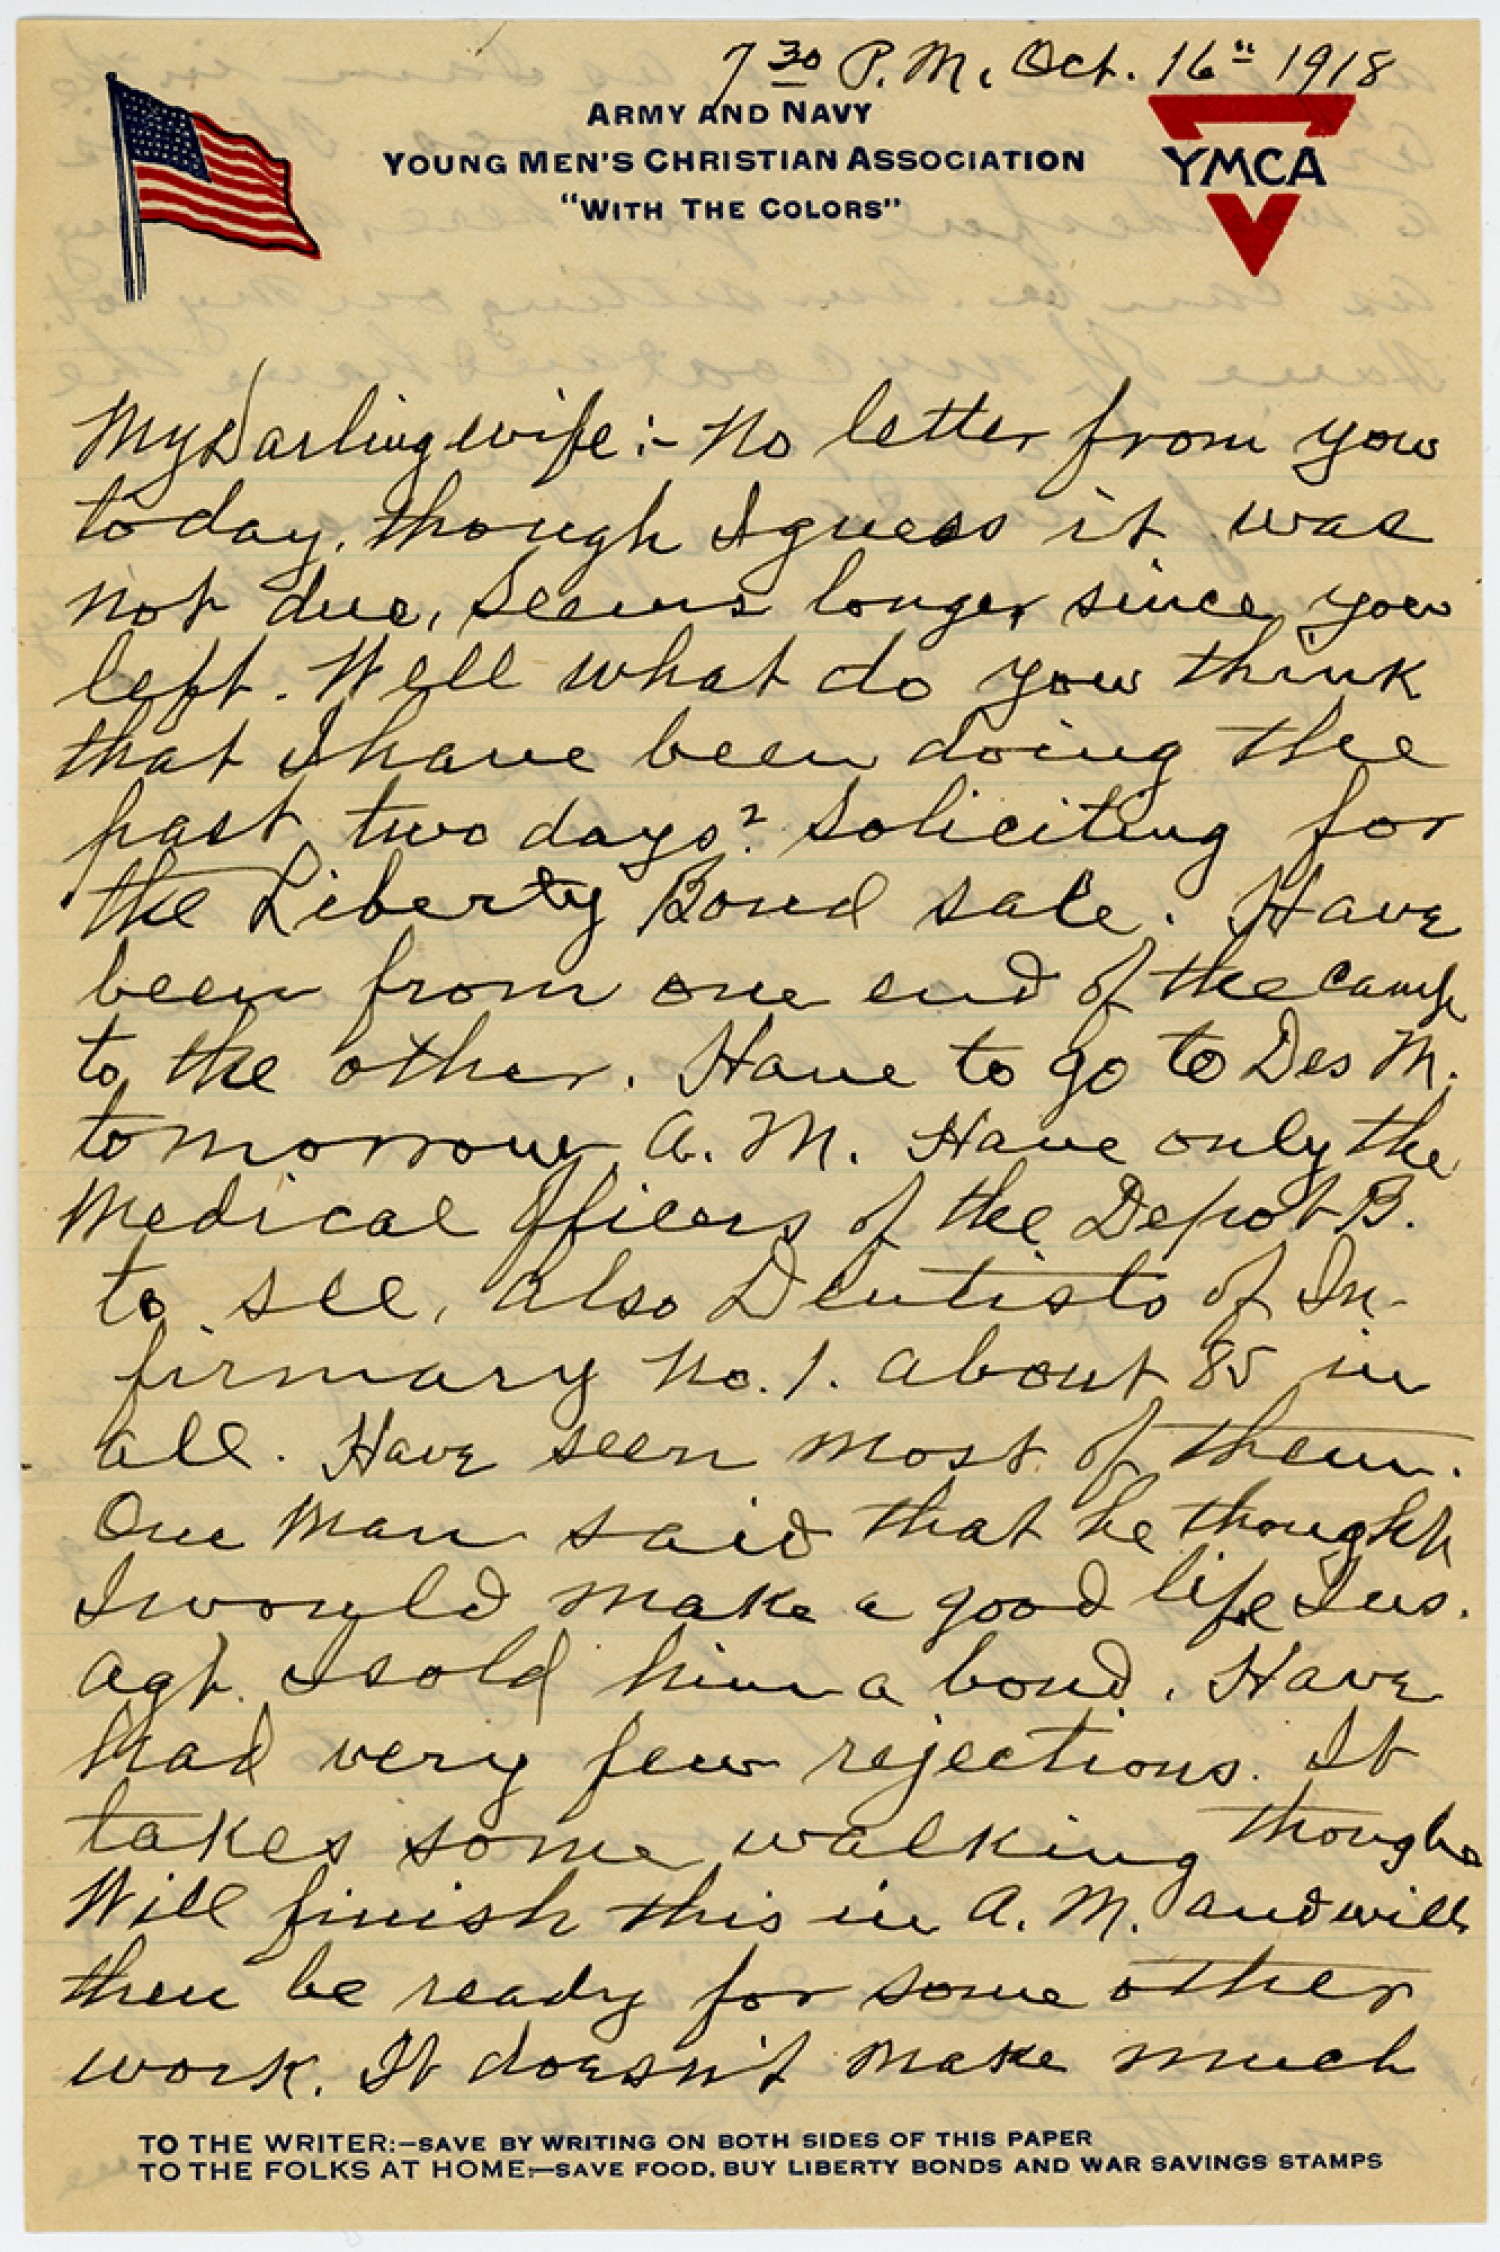 7 30 P.M. Oct. 16" 1918
ARMY AND NAVY
YOUNG MEN'S CHRISTIAN ASSOCIATION
"WITH THE COLORS"
YMCA
My Darling wife:- No letter from you
today, though I guess it was
not due, seems longer since you
left. Well what do you think
that I have been doing the
past two days? Soliciting for
the Liberty Bond sale. Have
been from one end of the camp
to the other. Have to go to Des M.
tomorrow A.M. Have only the
Medical Officers of the Depot B.
to see, also Dentists of In-
firmary No. 1. About 85 in
all. Have seen most of them.
One man said that he thought
I would make a good life Ins.
Agt. I sold him a bond. Have
had very few rejections. It
takes some walking though
Will finish this in A.M. and will
then be ready for some other
work. It doesn't make much
TO THE WRITER:—SAVE BY WRITING ON BOTH SIDES OF THIS PAPER
TO THE FOLKS AT HOME:—SAVE FOOD, BUY LIBERTY BONDS AND WAR SAVINGS STAMPS